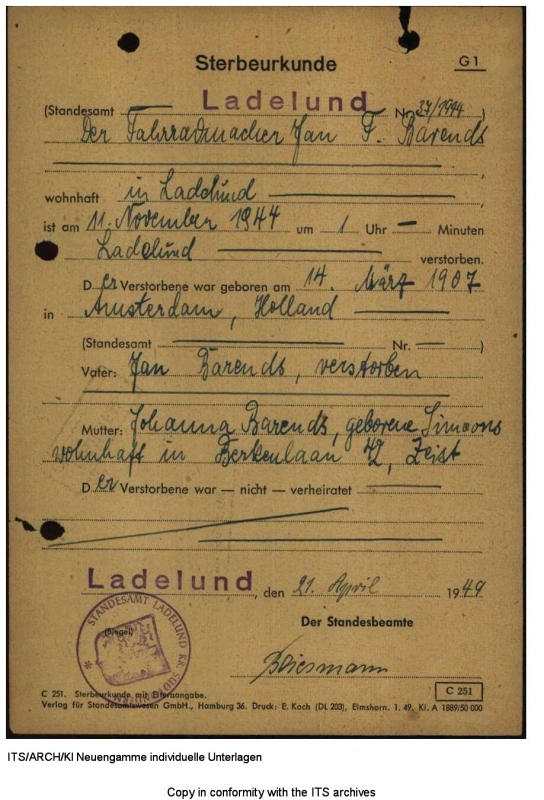 Sterbeurkunde
G 1
(Standesamt Ladelund Nr. 37/1944)
Der Fahrradmacher Jan F. Barends
wohnhaft in Ladelund
ist am 11. November 1944 um 1 Uhr — Minuten
Ladelund verstorben.
Der Verstorbene war geboren am 14. März 1907
in Amsterdam, Holland
(Standesamt — Nr. — )
Vater: Jan Barends, verstorben
Mutter: Johanna Barends, geborene Simoons
wohnhaft in Berkenlaan 72, Zeist
Der Verstorbene war — nicht — verheiratet
Ladelund, den 21. April 1949
STANDESAMT LADELUND KR. SÜD
(Siegel)
Der Standesbeamte
C 251. Sterbeurkunde mit Elternangabe.
C 251
Verlag für Standesamtswesen GmbH., Hamburg 36. Druck: E. Koch (DL 203), Elmshorn. 1. 49. Kl. A 1889/50 000
ITS/ARCH/KI Neuengamme individuelle Unterlagen
Copy in conformity with the ITS archives